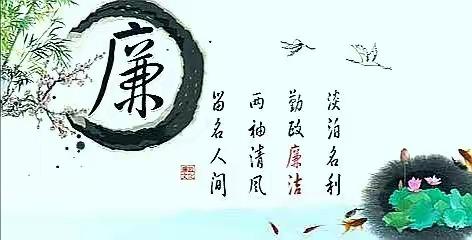 廉
淡泊名利
勤政廉洁
两袖清风
留名人间